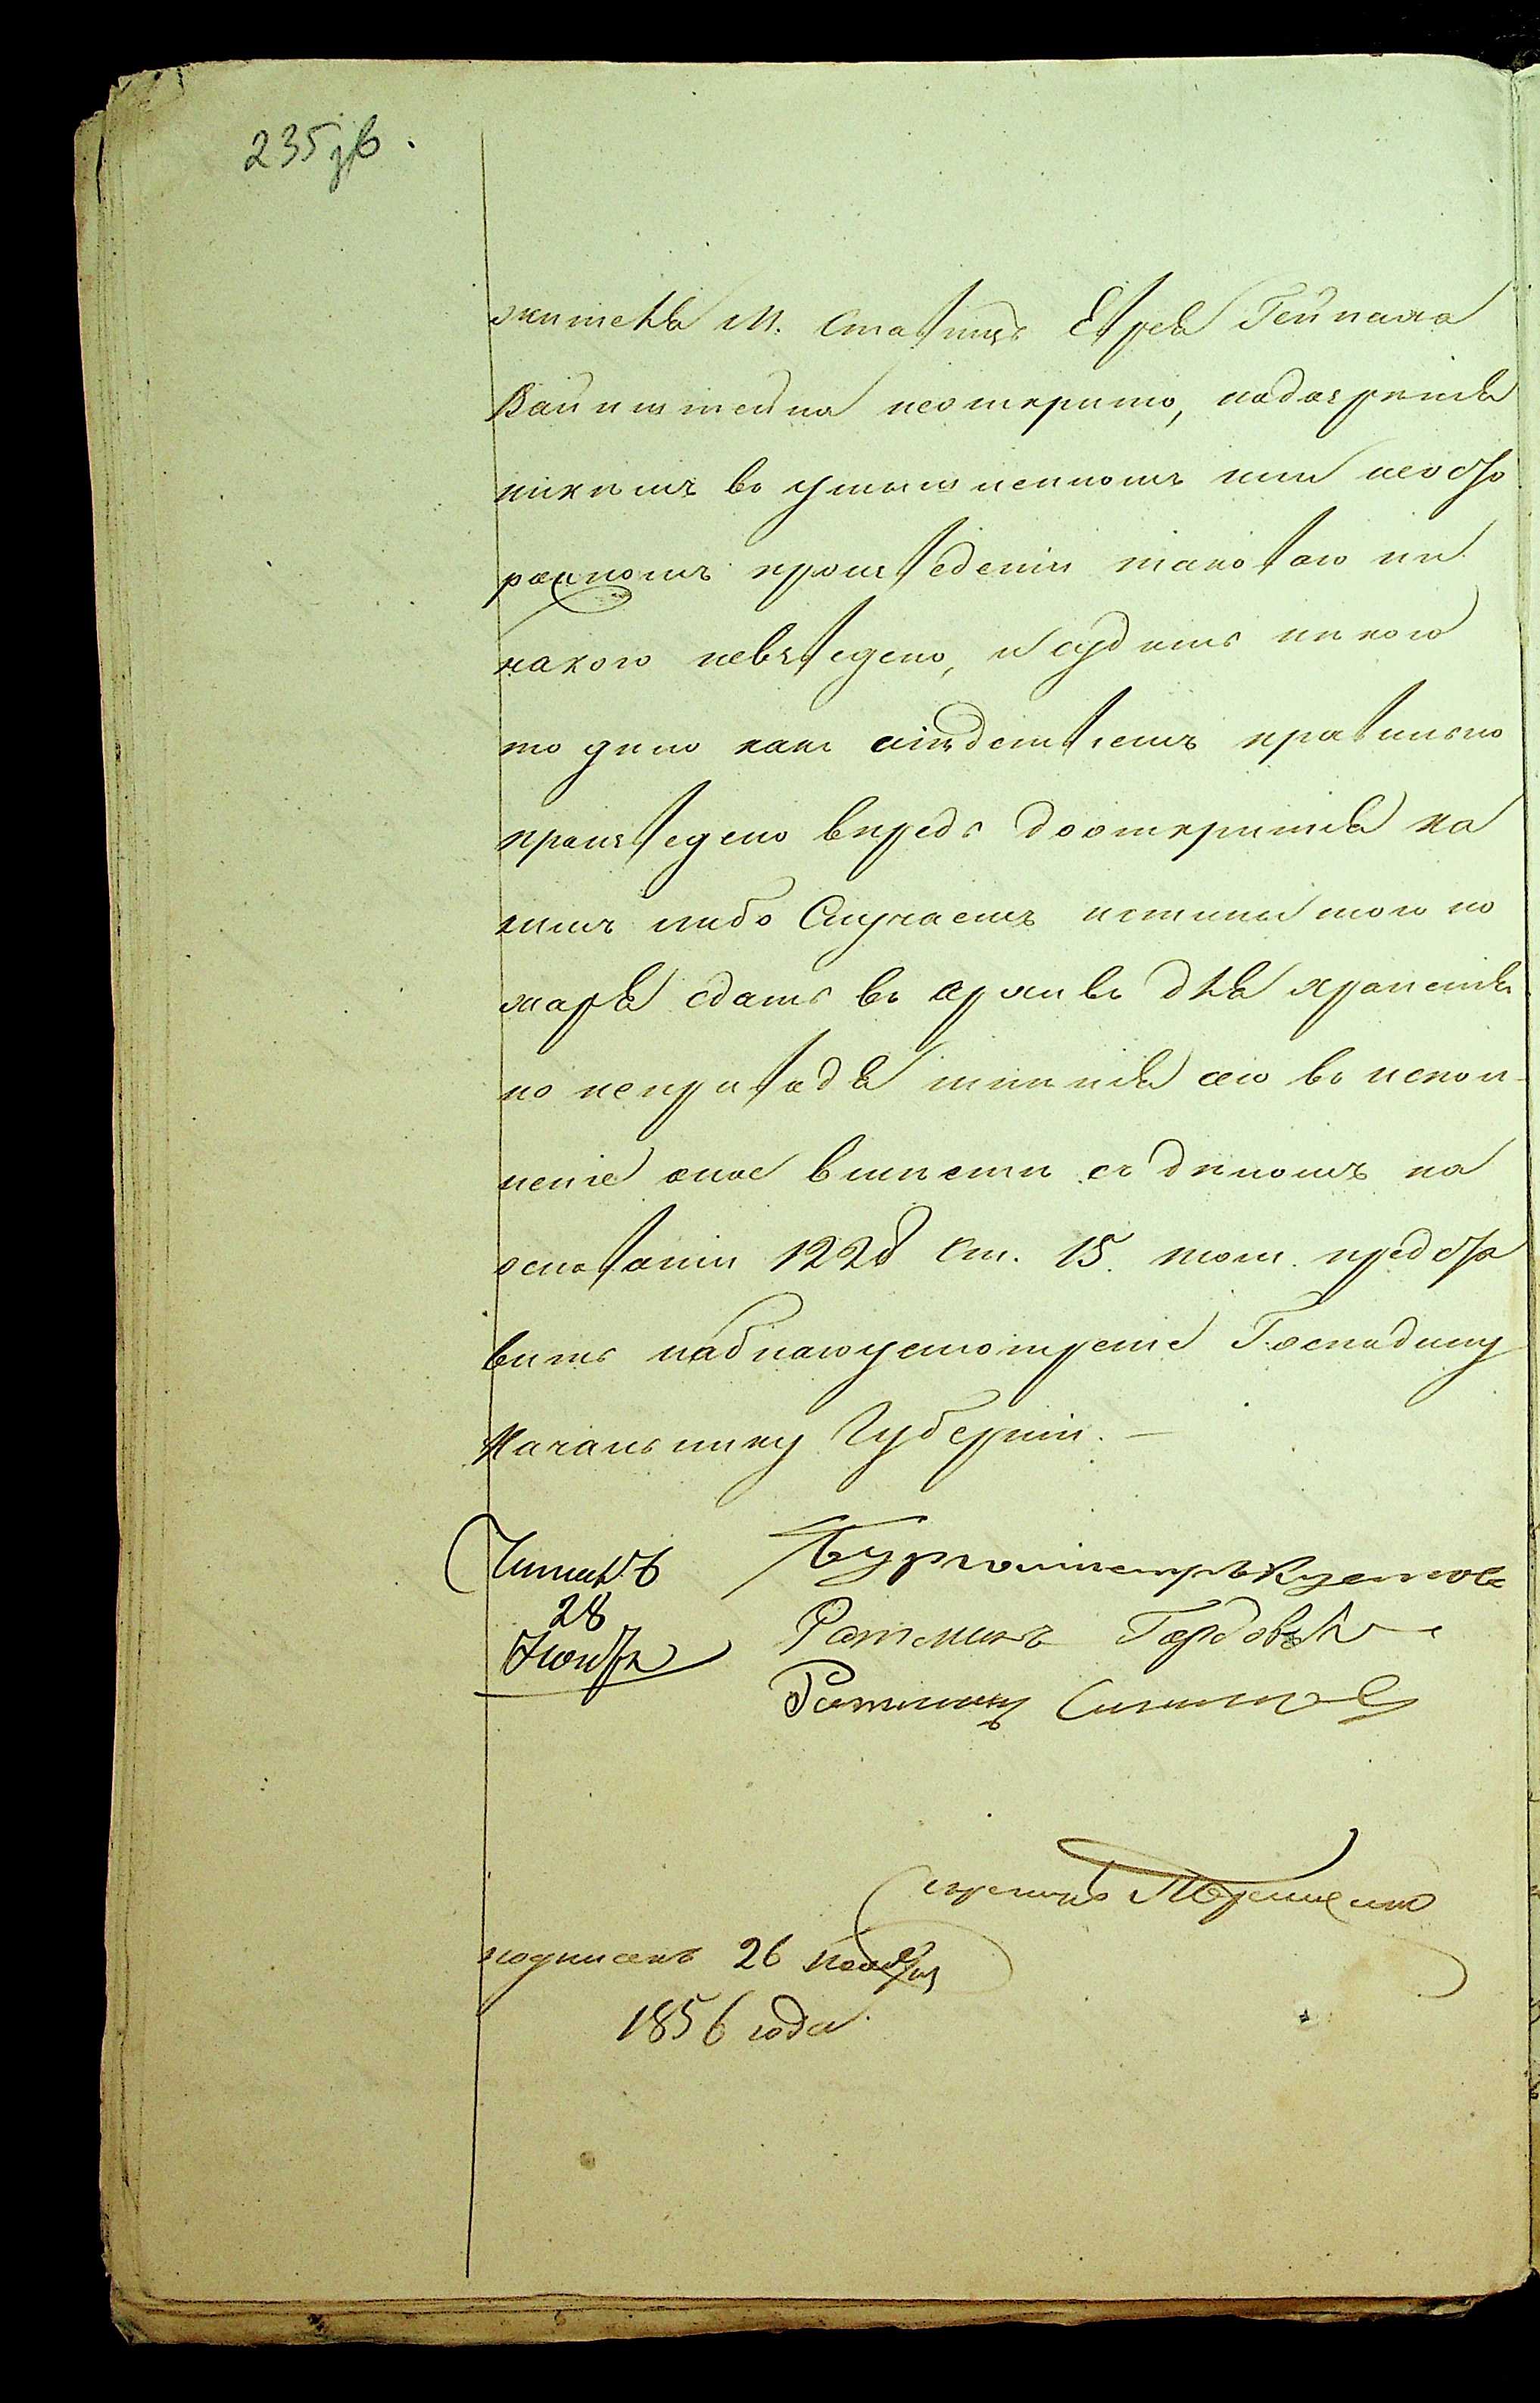 235 зв.
жителя М. Ставищъ Еврея Гейнаха
Вайнштейна неоткрыто, подозренія
ни к имъ въ умышленномъ или неосто
рожномъ произведеніи таковаго ни
накого невзведено, и судить никого
то дело какъ слѣдствіемъ правильно
произведено впредь дооткрытія ка
кимъ либо Случаемъ истины того по
жара сдать въ архивъ для храненія
но неприводя мненія сего въ испол-
неніе оное вместе съ деломъ на
основаніи 1228 Ст. 15. том. предста
вить наблагоусмотреніе Господину
Начальнику Губерніи. —
Читалъ
28
Ноября
Бургомистръ
Ратманъ
Ратманъ
Секретарь
подписанъ 26 ноября
1856 года